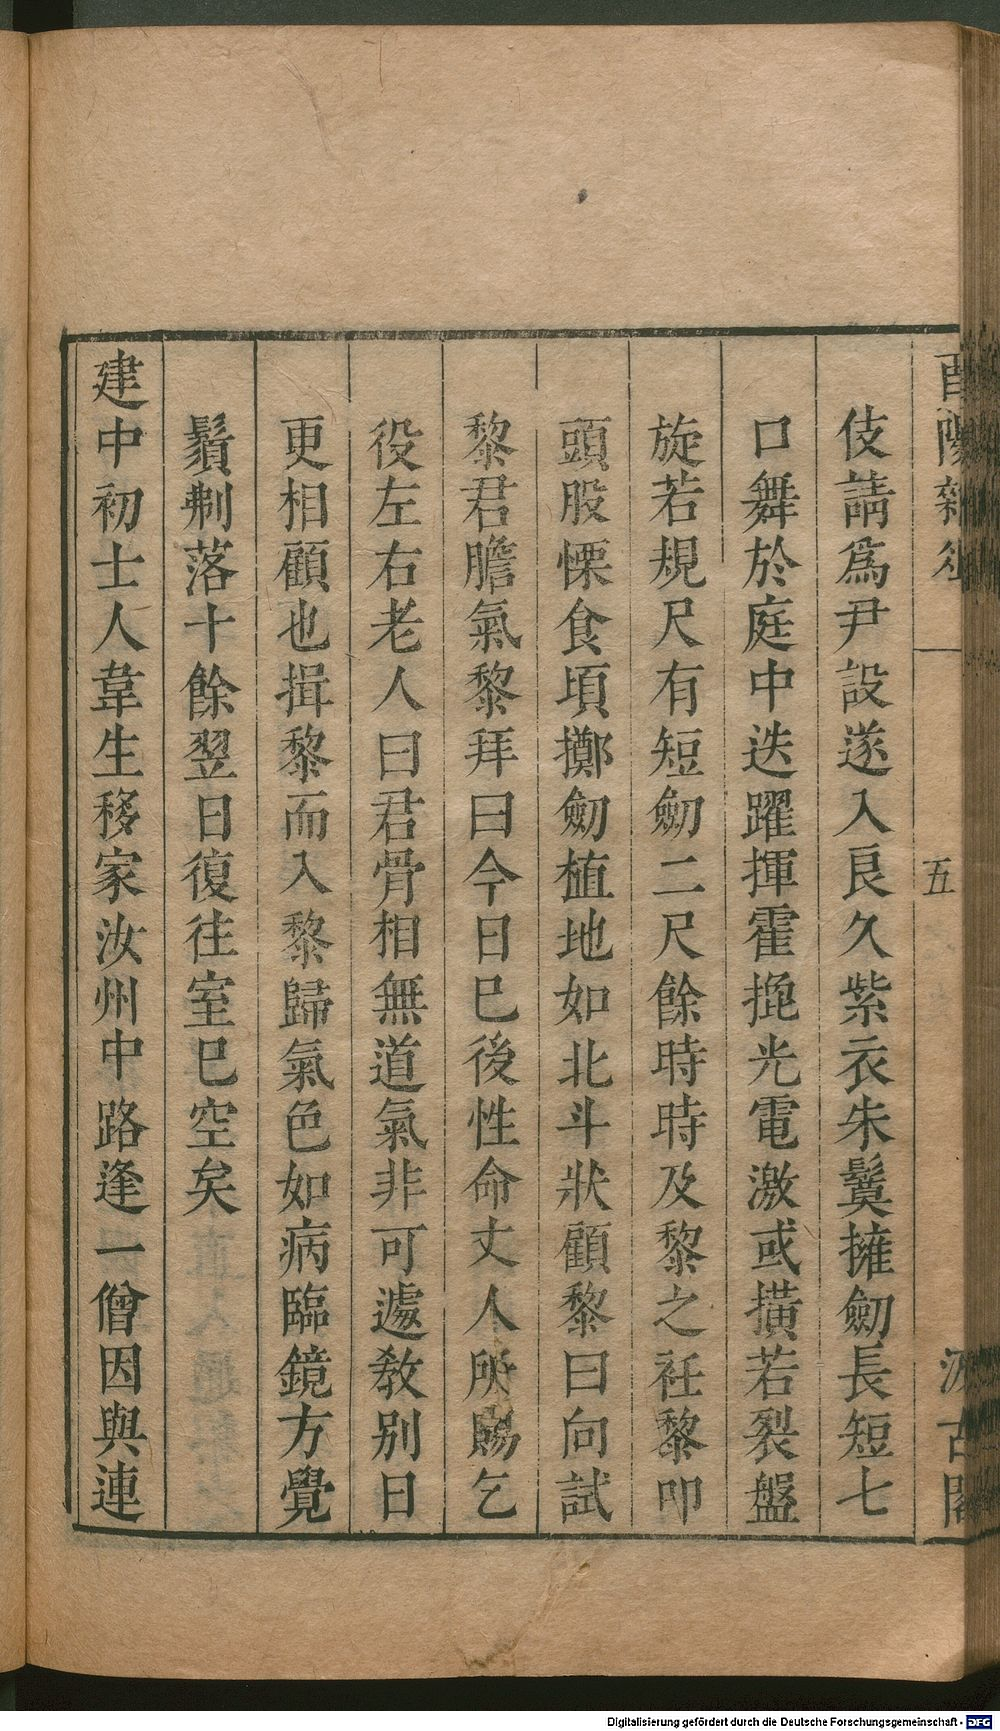 伎請爲尹設遂入良久紫衣朱鬕擁劒長短七
口舞於庭中迭躍揮霍㧞光電激或橫若裂盤
旋若規尺有短劒二尺餘時時及黎之衽黎叩
頭股慄食頃擲劒植地如北斗狀顧黎曰向試
黎君膽氣黎拜曰今日巳後性命丈人所賜乞
役左右老人曰君骨相無道氣非可遽教别日
更相顧也揖黎而入黎歸氣色如病臨鏡方覺
鬚剃落十餘翌日復往室巳空矣
建中初士人韋生移家汝州中路逢一僧因與連
酉陽雜俎
五
汲古閣
Digitalisierung gefördert durch die Deutsche Forschungsgemeinschaft - DFG